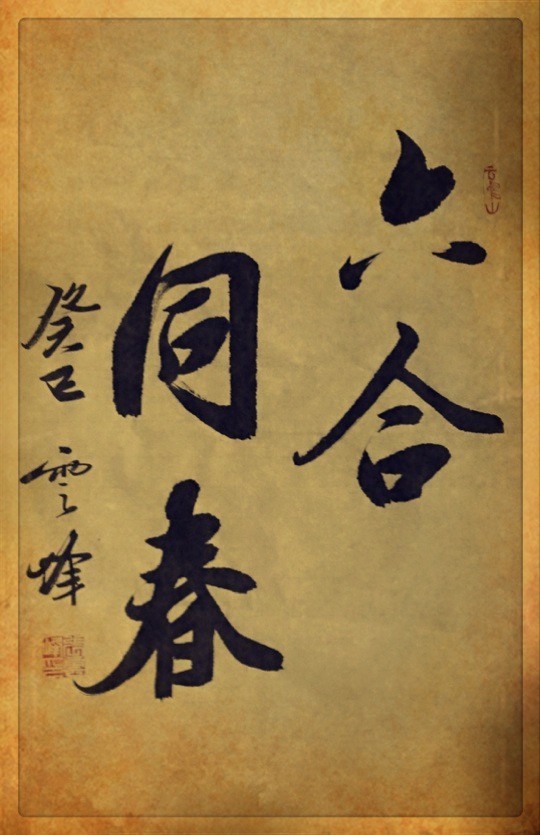 六合
同春
癸巳 雲峰